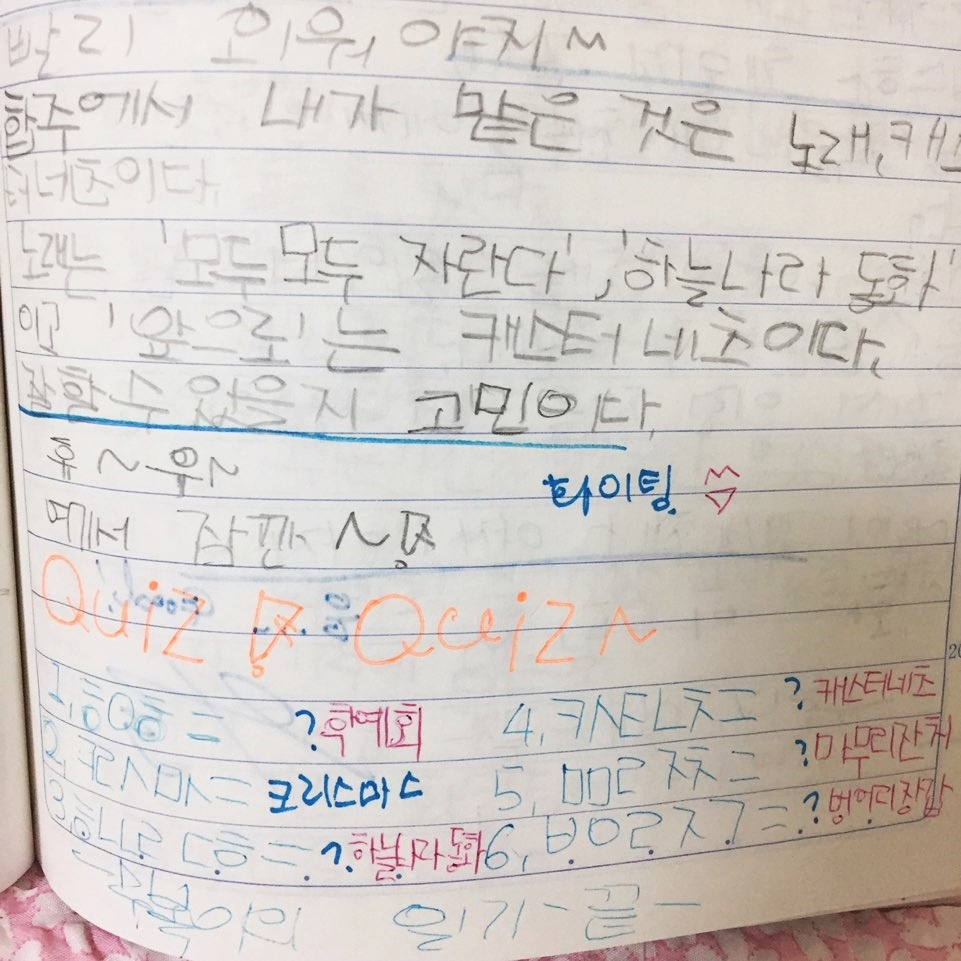 빨리 외워야지~
합주에서 내가 맡은 것은 노래, 캐스
터네츠이다.
노래는 '모두모두 자란다', '하늘나라 동화'
이고 '앞으로'는 캐스터네츠이다.
잘할 수 있을지 고민이다.
휴~우~
화이팅
에서 잠깐~
Quiz Quiz~
1, ㅎㅇㅎ = ? 학예회
2, ㅋㄹㅅㅁㅅ = 크리스마스
3, ㅎㄴㄹ ㄷㅎ = ? 하늘나라동화
4, ㅋㅅㅌㄴㅊ = ? 캐스터네츠
5, ㅁㅁㄹ ㅈㅊ = ? 마무리잔치
6, ㅂㅇㄹ ㅈㄱ = ? 벙어리장갑
일기-끝-